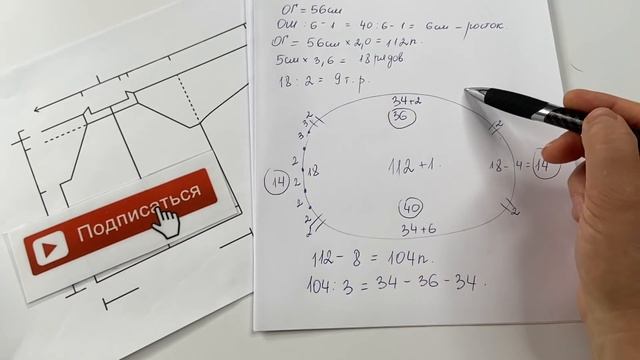 ОГ = 56см
ОШ : 6 - 1 = 40 : 6 - 1 = 6см - росток.
ОГ = 56см × 2,0 = 112п.
5см × 3,6 = 18 рядов
18 : 2 = 9 т.р.
34+2
36
2
3
3
2
2
2
2
2
2
18
14
112+1.
2
18 - 4 = 14
2
40
34+6
112 - 8 = 104п.
104 : 3 = 34 - 36 - 34.
Подписаться